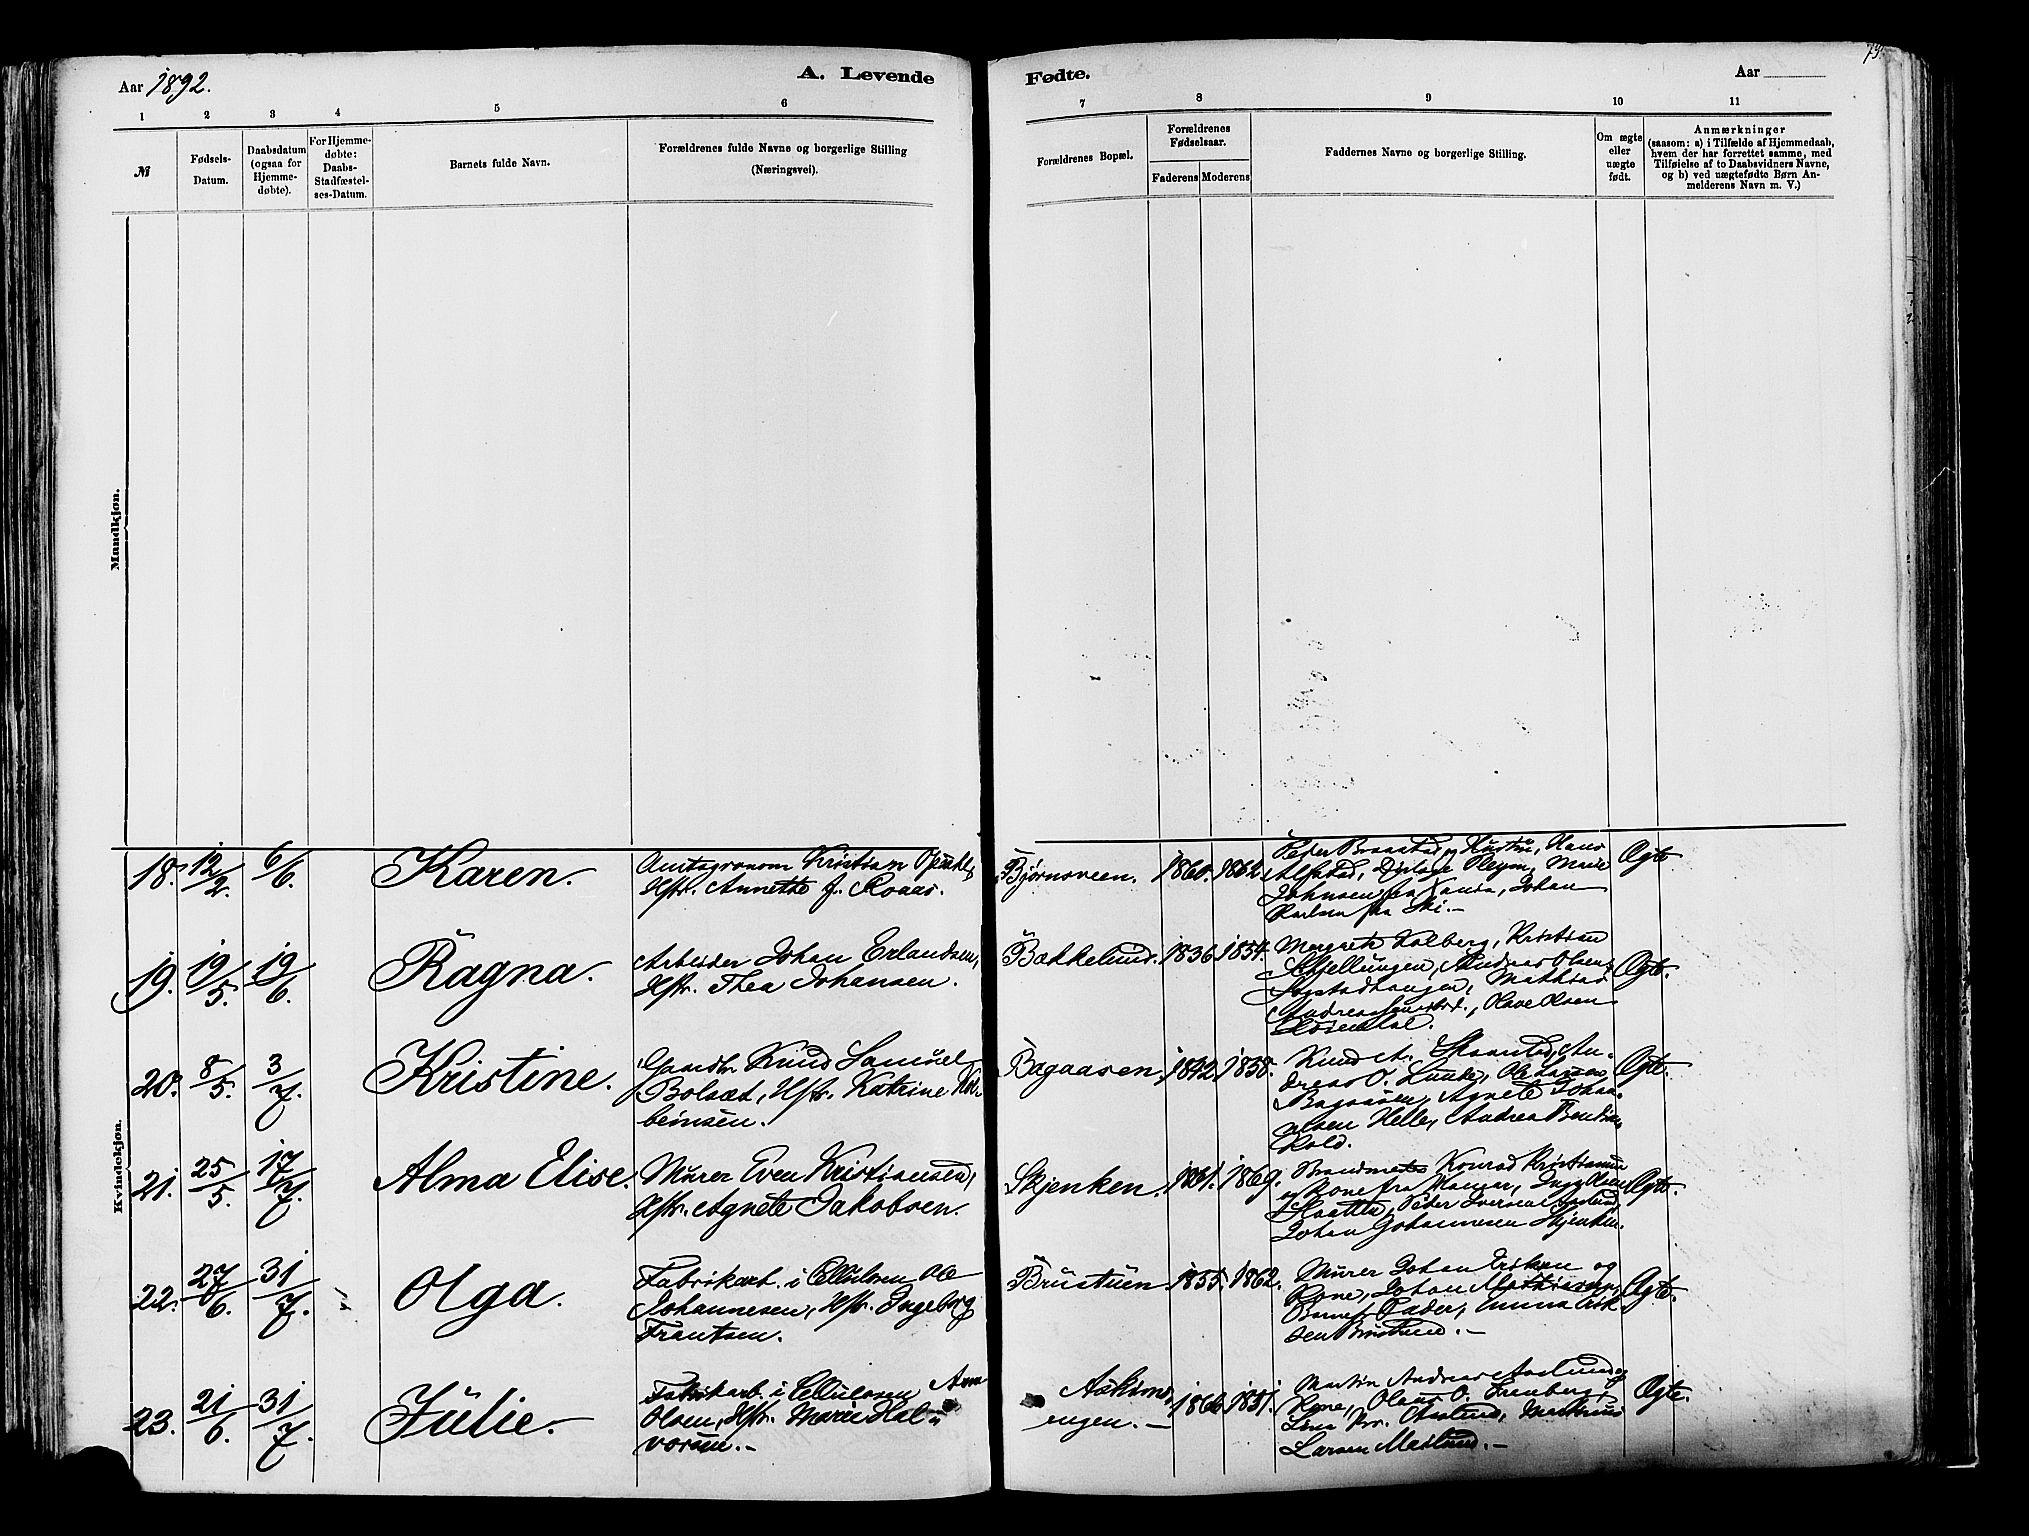 73.
Aar 1892.
A. Levende
Fødte.
Aar
1 2 3 4 5 6 7 8 9 10 11
№
Fødsels-
Datum.
Daabsdatum
(ogsaa for
Hjemme-
døbte).
For Hjemme-
døbte:
Daabs-
Stadfæstel-
ses-Datum.
Barnets fulde Navn.
Forældrenes fulde Navne og borgerlige Stilling
(Næringsvei).
Forældrenes Bopæl.
Forældrenes
Fødselsaar.
Faderens
Moderens
Faddernes Navne og borgerlige Stilling.
Om ægte
eller
uægte
født.
Anmærkninger
(saasom: a) i Tilfælde af Hjemmedaab,
hvem der har forrettet samme, med
Tilføielse af to Daabsvidners Navne,
og b) ved uægtefødte Børn An-
melderens Navn m. V.)
Mandkjøn.
Kvindekjøn.
18. 12/2. 6/6. Karen.
Amtagronom Kristian
Hstr. Annette f. Roaas.
Bjørnsveen. 1860. 1862.
Peter Braastad og Hustru, Hans
Alfstad, Marie
Johnsen fra Johan
Karlsen fra Ski.-
Ægte
19. 19/5. 19/6. Ragna.
Arbeider Johan Erlandsen,
Hstr. Thea Johansen.
Bækkelund. 1836 1854.
Margrete Kolberg, Kristian
Skjellungen, Andreas Olsen
Mathias
Andreas Olave Olsen
Rosendal.
Ægte.
20. 8/5. 3/7. Kristine.
Gaardbr. Knud Samuel
Bolsæt, Hstr. Katrine Kol-
beinsen.
Bagaasen. 1842. 1858.
Knud A. Skaarstad, An-
dreas O. Lunke, Ole Hansen
Bagaasen, Agnete Johan-
nesen Helle, Andrea
Kold.
Ægte.
21. 25/5. 17/7. Alma Elise.
Murer Even Kristiansen,
Hstr. Agnete Jakobsen.
Skjenken. 1861. 1869.
Konrad Kristiansen
og Kone fra Olsen
Slaatten, Peder Iversen
Johan Johannesen Skjenken.
Ægte.
22. 27/6. 31/7. Olga.
Fabrikarb. i Cellulosen Ole
Johannesen, Hstr. Ingeborg
Frantsen.
Brustuen 1855. 1862.
Murer Johan Eriksen og
Kone, Johan Mathisen,
Barnets Fader, Emma Erik-
sen Brustuen.-
Ægte.
23. 21/6. 31/7. Julie.
Fabrikarb. i Cellulosen
Olsen, Hstr. Marie Hal-
vorsen.-
Askims-
engen.- 1866 1861.
Martin Andreas Aaslund og
Kone, Olaus O. Grenberg,
Lina Aaslund,
Larsen Maslund.-
Ægte.